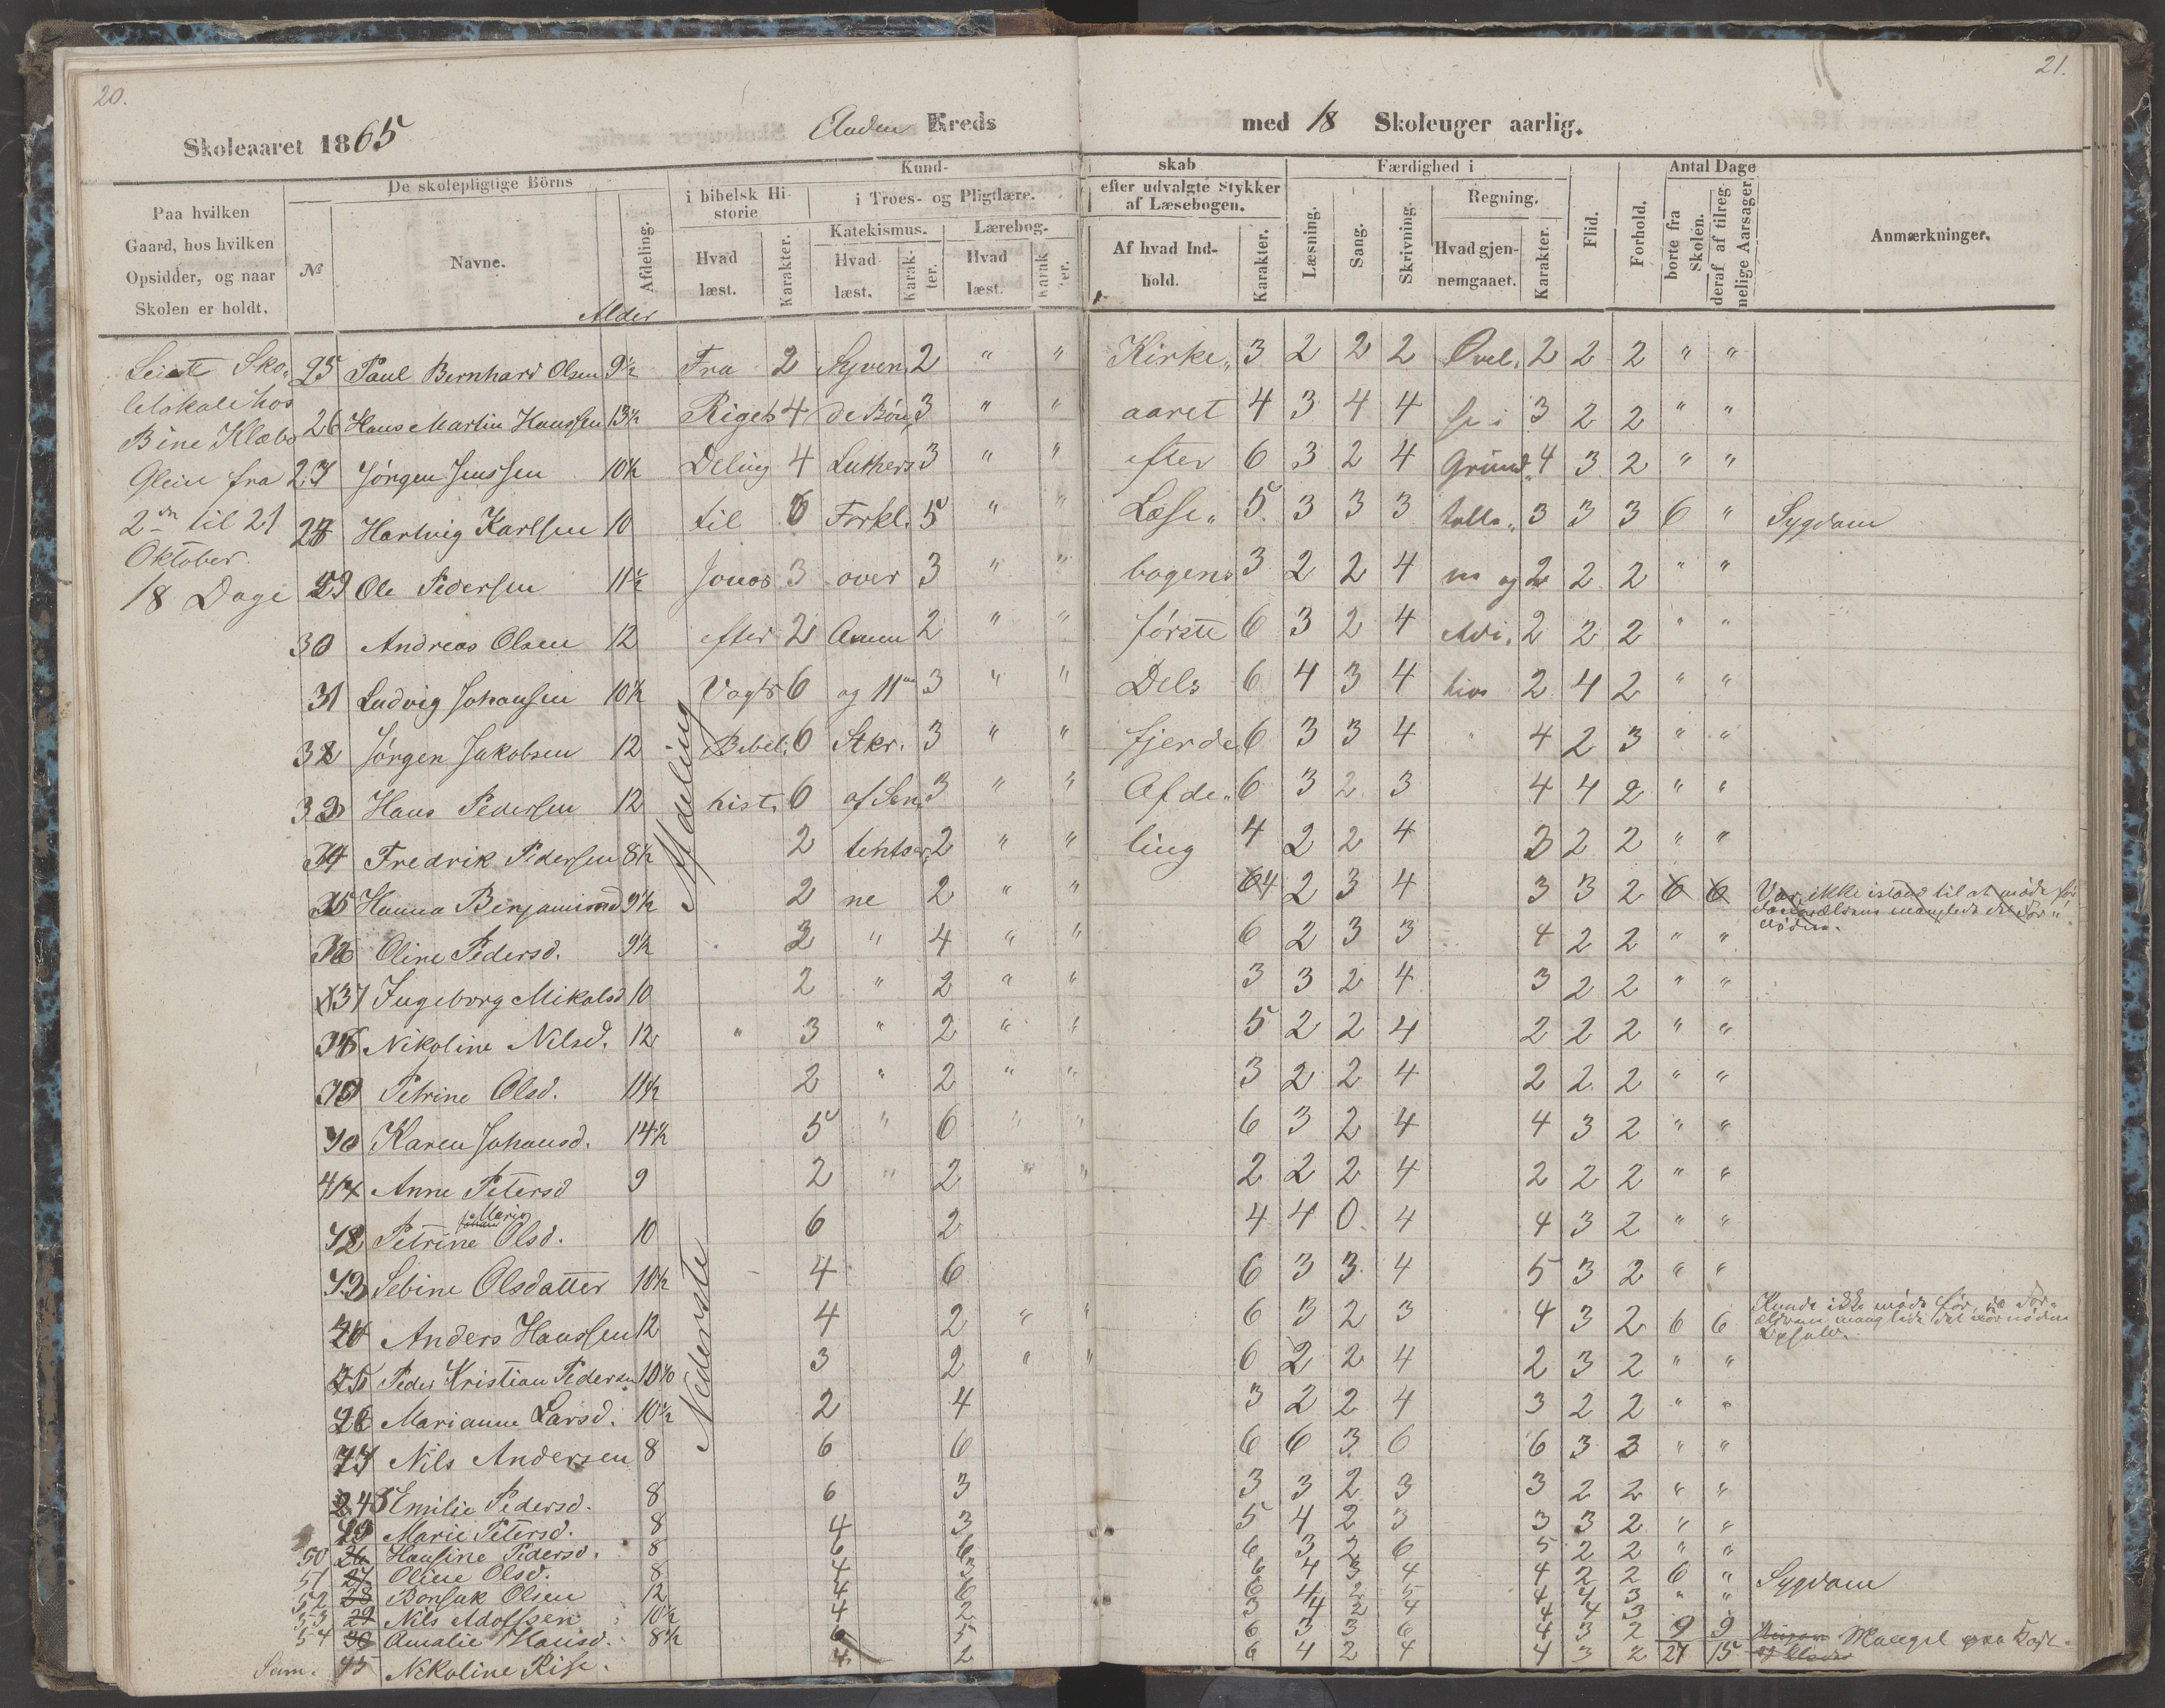 20.
21.
Skoleaaret 1865 Anden Kreds med 18 Skoleuger aarlig.
Paa hvilken Gaard, hos hvilken Opsidder, og naar Skolen er holdt.
De skolepligtige Börns
№
Navne.
Alder
Afdeling.
Kund-
i bibelsk Hi-
storie
Hvad læst.
Karakter.
i Troes- og Pligtlære.
Katekismus.
Hvad læst.
Karak-
ter.
Lærebog.
Hvad læst.
Karak
ter.
skab
efter udvalgte Stykker
af Læsebogen.
Af hvad Ind-
hold.
Karakter.
Færdighed i
Læsning.
Sang.
Skrivning.
Regning.
Hvad gjen-
nemgaaet.
Karakter.
Flid.
Forhold.
Antal Dage
borte fra
Skolen.
deraf af tilreg-
nelige Aarsager
Anmærkninger.
Oktober.
18 Dage
Nederste Afdeling
25 Paul Bernhard Olsen 9½ Fra 2 Syven 2 " " Kirke„ 3 2 2 2 Øvel. 2 2 2 " "
26 Hans Martin Hanssen 13½ Rigets 4 de Bön 3 " " aaret 4 3 4 4 se i 3 2 2 " "
27 Jörgen Jenssen 10½ Deling 4 Luthers 3 " " efter 6 3 2 4 Grund„ 4 3 2 " "
28 Hartvig Karlsen 10 til 6 Forkl. 5 " " Læse„ 5 3 3 3 talle„ 3 3 3 6 " Sygdom
29 Ole Pedersen 11½ Jonas 3 over 3 " " bogens 3 2 2 4 ne og 2 2 2 " "
30 Andreas Olsen 12 efter 2 Amen 2 " " förste 6 3 2 4 2 2 2 " "
31 Ludvig Johansen 10½ Vogts 6 og 11te 3 " " Dels 6 4 3 4 2 4 2 " "
32 Jörgen Jakobsen 12 Bibel. 6 Stkr. 3 " " fjerde 6 3 3 4 " 4 2 3 " "
33 Hans Pedersen 12 hist. 6 af Sen 3 " " Afde„ 6 3 2 3 4 4 2 " "
34 Fredrik Pedersen 8½ 2 tentser 2 " " ling 4 2 2 4 3 2 2 " "
35 Hanna Benjaminsd 9½ 2 ne 2 " " 4 2 3 4 3 3 2 6 6 Var ikke istand til at möde för
36 Oline Pedersd. 9½ 2 " 4 " " 6 2 3 3 4 2 2 " "
37 Ingeborg Mikalsd 10 2 " 2 " " 3 3 2 4 3 2 2 " "
38 Nikoline Nilsd. 12 " 3 " 2 " " 5 2 2 4 2 2 2 " "
39 Petrine Olsd. 11½ 2 " 2 " " 3 2 2 4 2 2 2 " "
40 Karen Johansd. 14½ 5 " 6 " " 6 3 2 4 4 3 2 " "
41 Anne Petersd 9 2 " 2 " " 2 2 2 4 2 2 2 " "
Maria
42 Petrine Olsd. 10 6 2 4 4 0 4 4 3 2 " "
43 Sebine Olsdatter 10½ 4 6 6 3 3 4 5 3 2 " "
44 Anders Hanssen 12 4 2 " " 6 3 2 3 4 3 2 6 6 Kunde ikke möde för, da For-
45 Peder Kristian Pedersen 10 3 2 " " 6 2 2 4 2 3 2 " "
46 Marianne Larsd. 10½ 2 4 3 2 2 4 3 2 2 " "
47 Nils Andersen 8 6 6 6 6 3 6 6 3 3 " "
48 Emilie Pedersd. 8 6 3 3 3 2 3 3 2 2 " "
49 Marie Petersd. 8 4 3 5 4 2 3 3 3 2 " "
50 26 Hansine Pedersd. 8 6 6 6 3 2 6 5 2 2 " "
51 27 Oline Olsd. 8 4 3 6 4 3 4 4 2 2 6 " Sygdom
52 28 Bonsak Olsen 12 4 6 6 4 2 5 4 4 3 " "
53 29 Nils Adolfsen 10½ 4 2 3 4 2 4 4 4 3
54 30 Amalie Hansd. 8½ 6 5 6 3 3 6 4 3 2 9 9 Mangel paa
Sum. 45 Nikoline Rise. 4 2 6 4 2 4 4 3 2 27 15